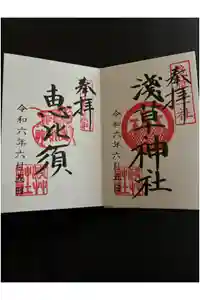 奉拝
淺草神社
令和六年六月
奉拝
恵比須
令和六年六月